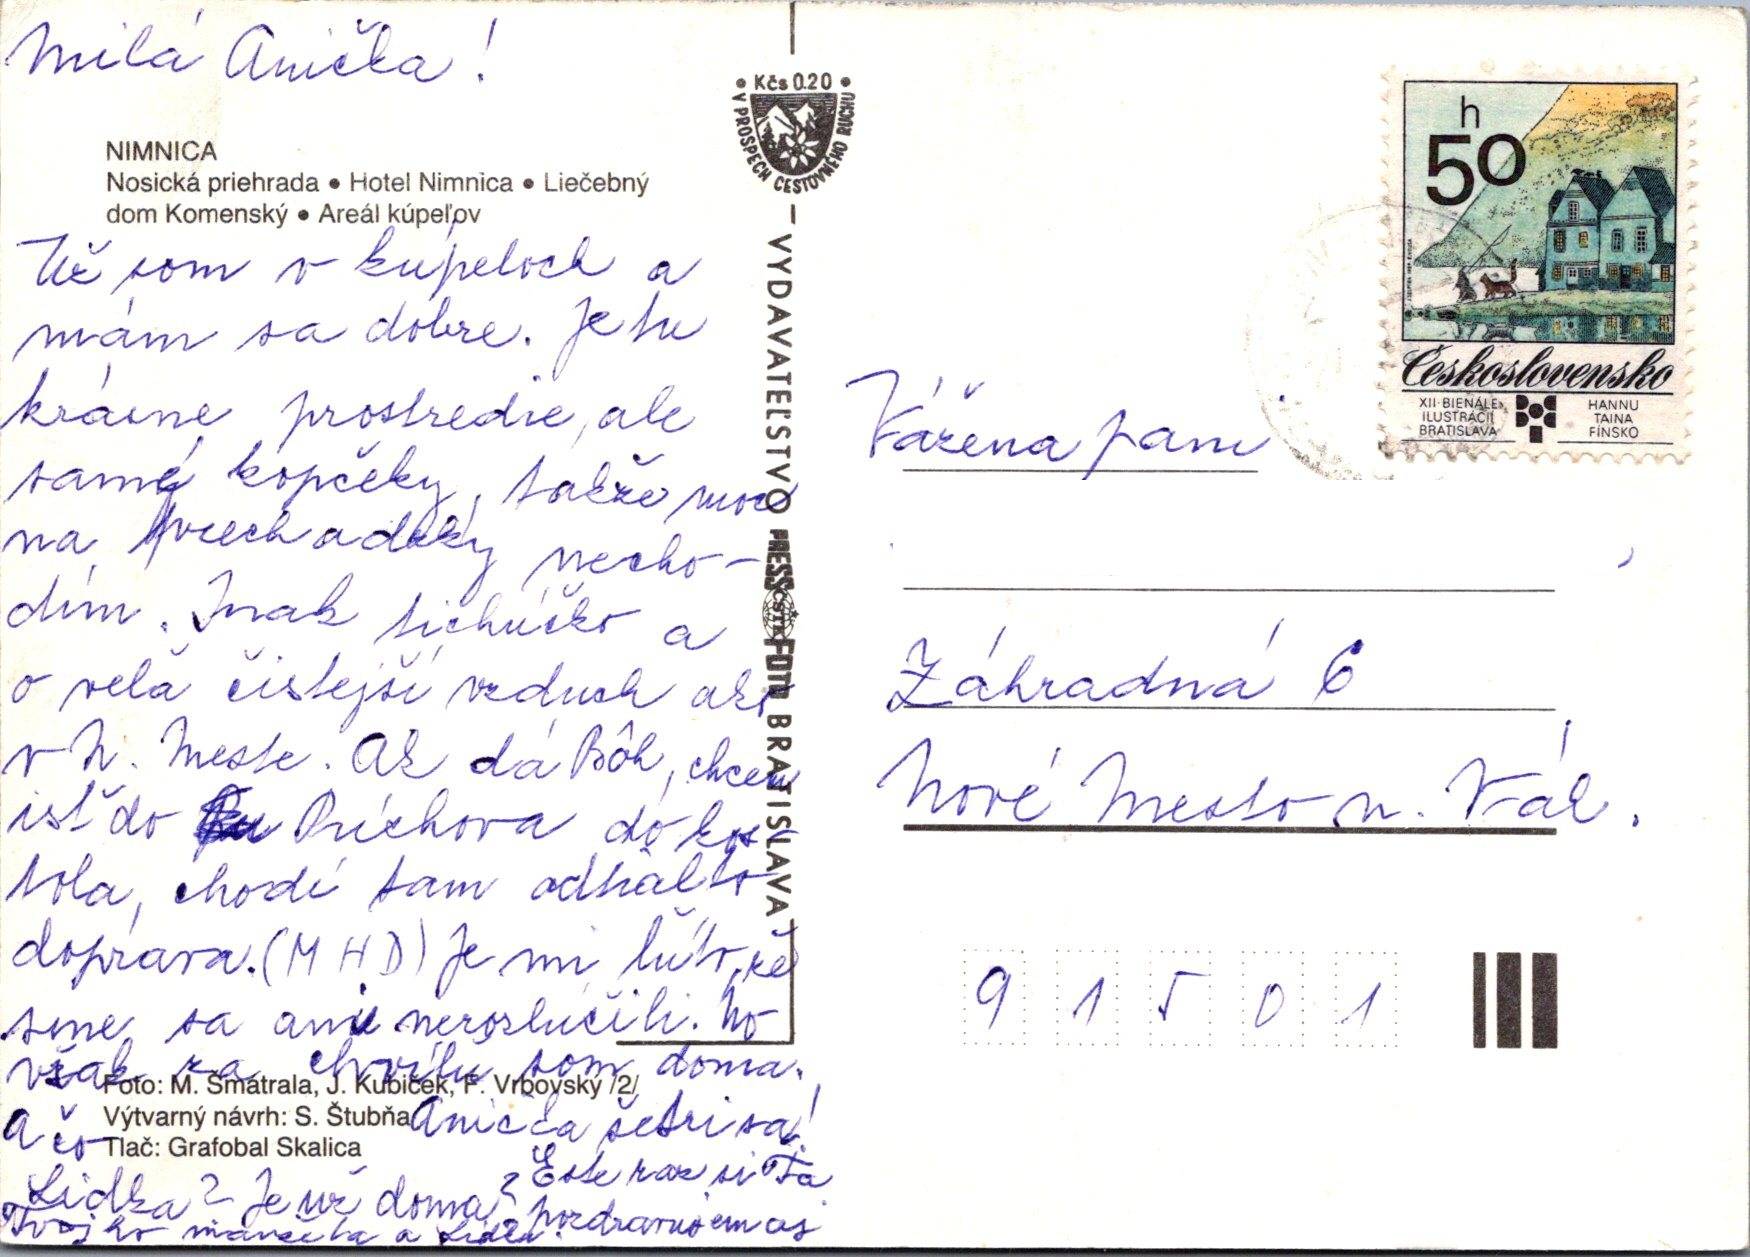 Milá Anička!
NIMNICA
Nosická priehrada • Hotel Nimnica • Liečebný
dom Komenský • Areál kúpeľov
Už som v kúpeloch a
mám sa dobre. Je tu
krásne prostredie, ale
samé kopčeky, takže moc
na vychadzky necho-
dím. Inak tichúčko a
o veľa čistejší vzduch ako
v N. Meste. Ak dá Bôh, chcem
ísť do Púchova do kos-
tola, chodí tam odtiaľto
doprava. (MHD) Je mi ľúto, že
sme sa ani nerozlúčili. No
však za chvíľu som doma.
Foto: M. Šmátrala, J. Kubíček, F. Vrbovský /2/
Výtvarný návrh: S. Štubňa
Tlač: Grafobal Skalica
Anička šetri sa!
A čo
Lidka? Je už doma?
Ešte raz si Ťa
pozdravujem aj
Tvojho manžela a Lidku.
• Kčs 0.20 •
V PROSPECH CESTOVNÉHO RUCHU
VYDAVATEĽSTVO PRESSFOTO BRATISLAVA
ČSTK
h
50
Československo
XII. BIENÁLE
ILUSTRÁCIÍ
BRATISLAVA
HANNU
TAINA
FÍNSKO
Vážena pani
Záhradná 6
Nové Mesto n. Váh.
91501